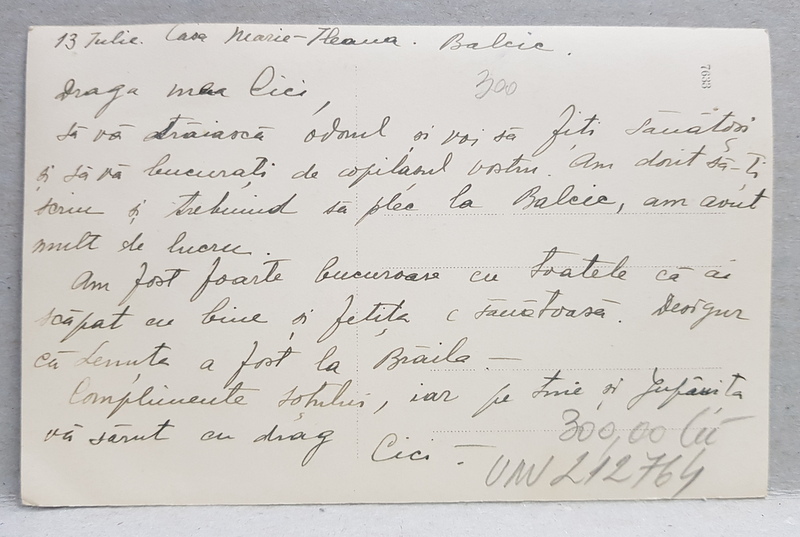 13 Iulie. Casa Marie-Ileana. Balcic.
300
7693
Draga mea Cici,
să vă trăiască odorul, și voi să fiți sănătoși
și să vă bucurați de copilașul vostru. Am dorit să-ți
scriu și trebuind să plec la Balcic, am avut
mult de lucru.
Am fost foarte bucuroase cu toatele că ai
scăpat cu bine și fetița e sănătoasă. Desigur
că Lenuța a fost la Brăila. —
Complimente soțului, iar pe tine și jupânița
vă sărut cu drag
Cici —
300,00 Lei
UNV 212764